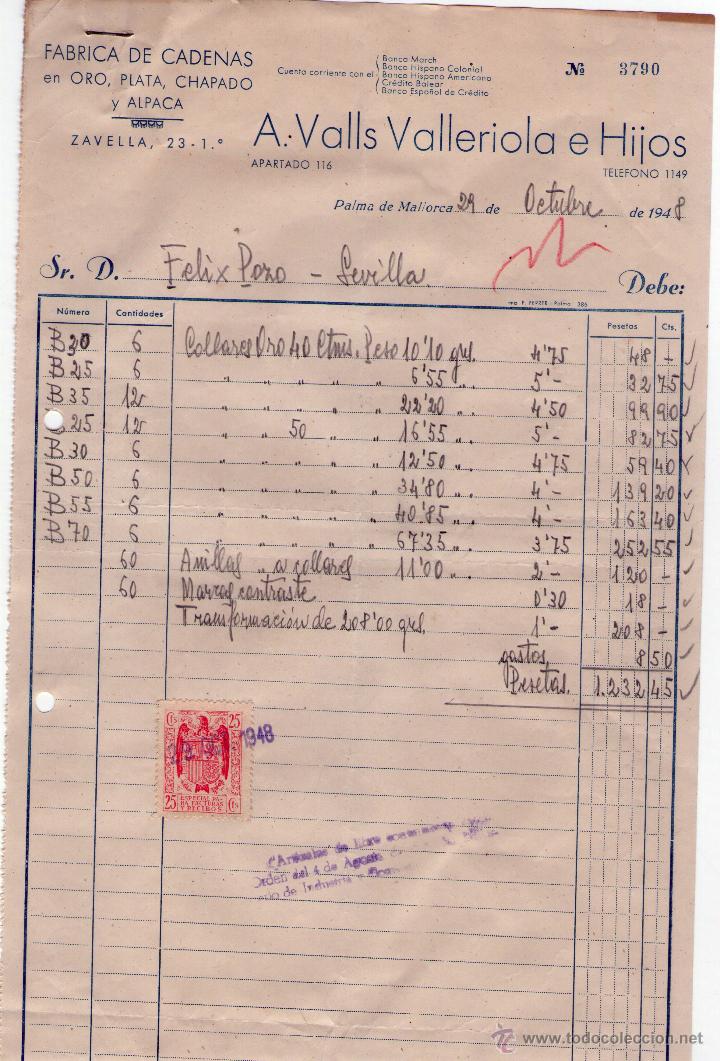 FABRICA DE CADENAS
en ORO, PLATA, CHAPADO
y ALPACA
ZAVELLA, 23 - 1.º
Cuenta corriente con el
Banca March
Banco Hispano Colonial
Banco Hispano Americano
Crédito Balear
Banco Español de Crédito
Nº 3790
A. Valls Valleriola e Hijos
APARTADO 116
TELEFONO 1149
Palma de Mallorca 29 de Octubre de 1948
Sr. D. Felix Pozo - Sevilla. Debe:
Palma 386
Número Cantidades Pesetas Cts.
B 20 6 Collares Oro 40 Ctms. Peso 10'10 grs. 4'75 48 -
B 25 6 " " " " 6'55 " . 5'- 32 75
B 35 12 " " " " 22'20 " . 4'50 99 90
25 12 " " 50 " " 16'55 " . 5'- 82 75
B 30 6 " " " " 12'50 " . 4'75 59 40
B 50 6 " " " " 34'80 " . 4'- 139 20
B 55 6 " " " " 40'85 " . 4'- 163 40
B 70 6 " " " " 67'35 " . 3'75 252 55
60 Anillas " a collares 11'00 " . 2'- 120 -
60 Marcas contraste 0'30 18 -
Transformación de 208'00 grs. 1'- 208 -
gastos 8 50
Pesetas. 1.232 45
Cts 25
1948
ESPECIAL PA-
RA FACTURAS
Y RECIBOS
25 Cts
Artículos de libre
Orden del 4 de Agosto
de Industria
todocoleccion
www.todocoleccion.net